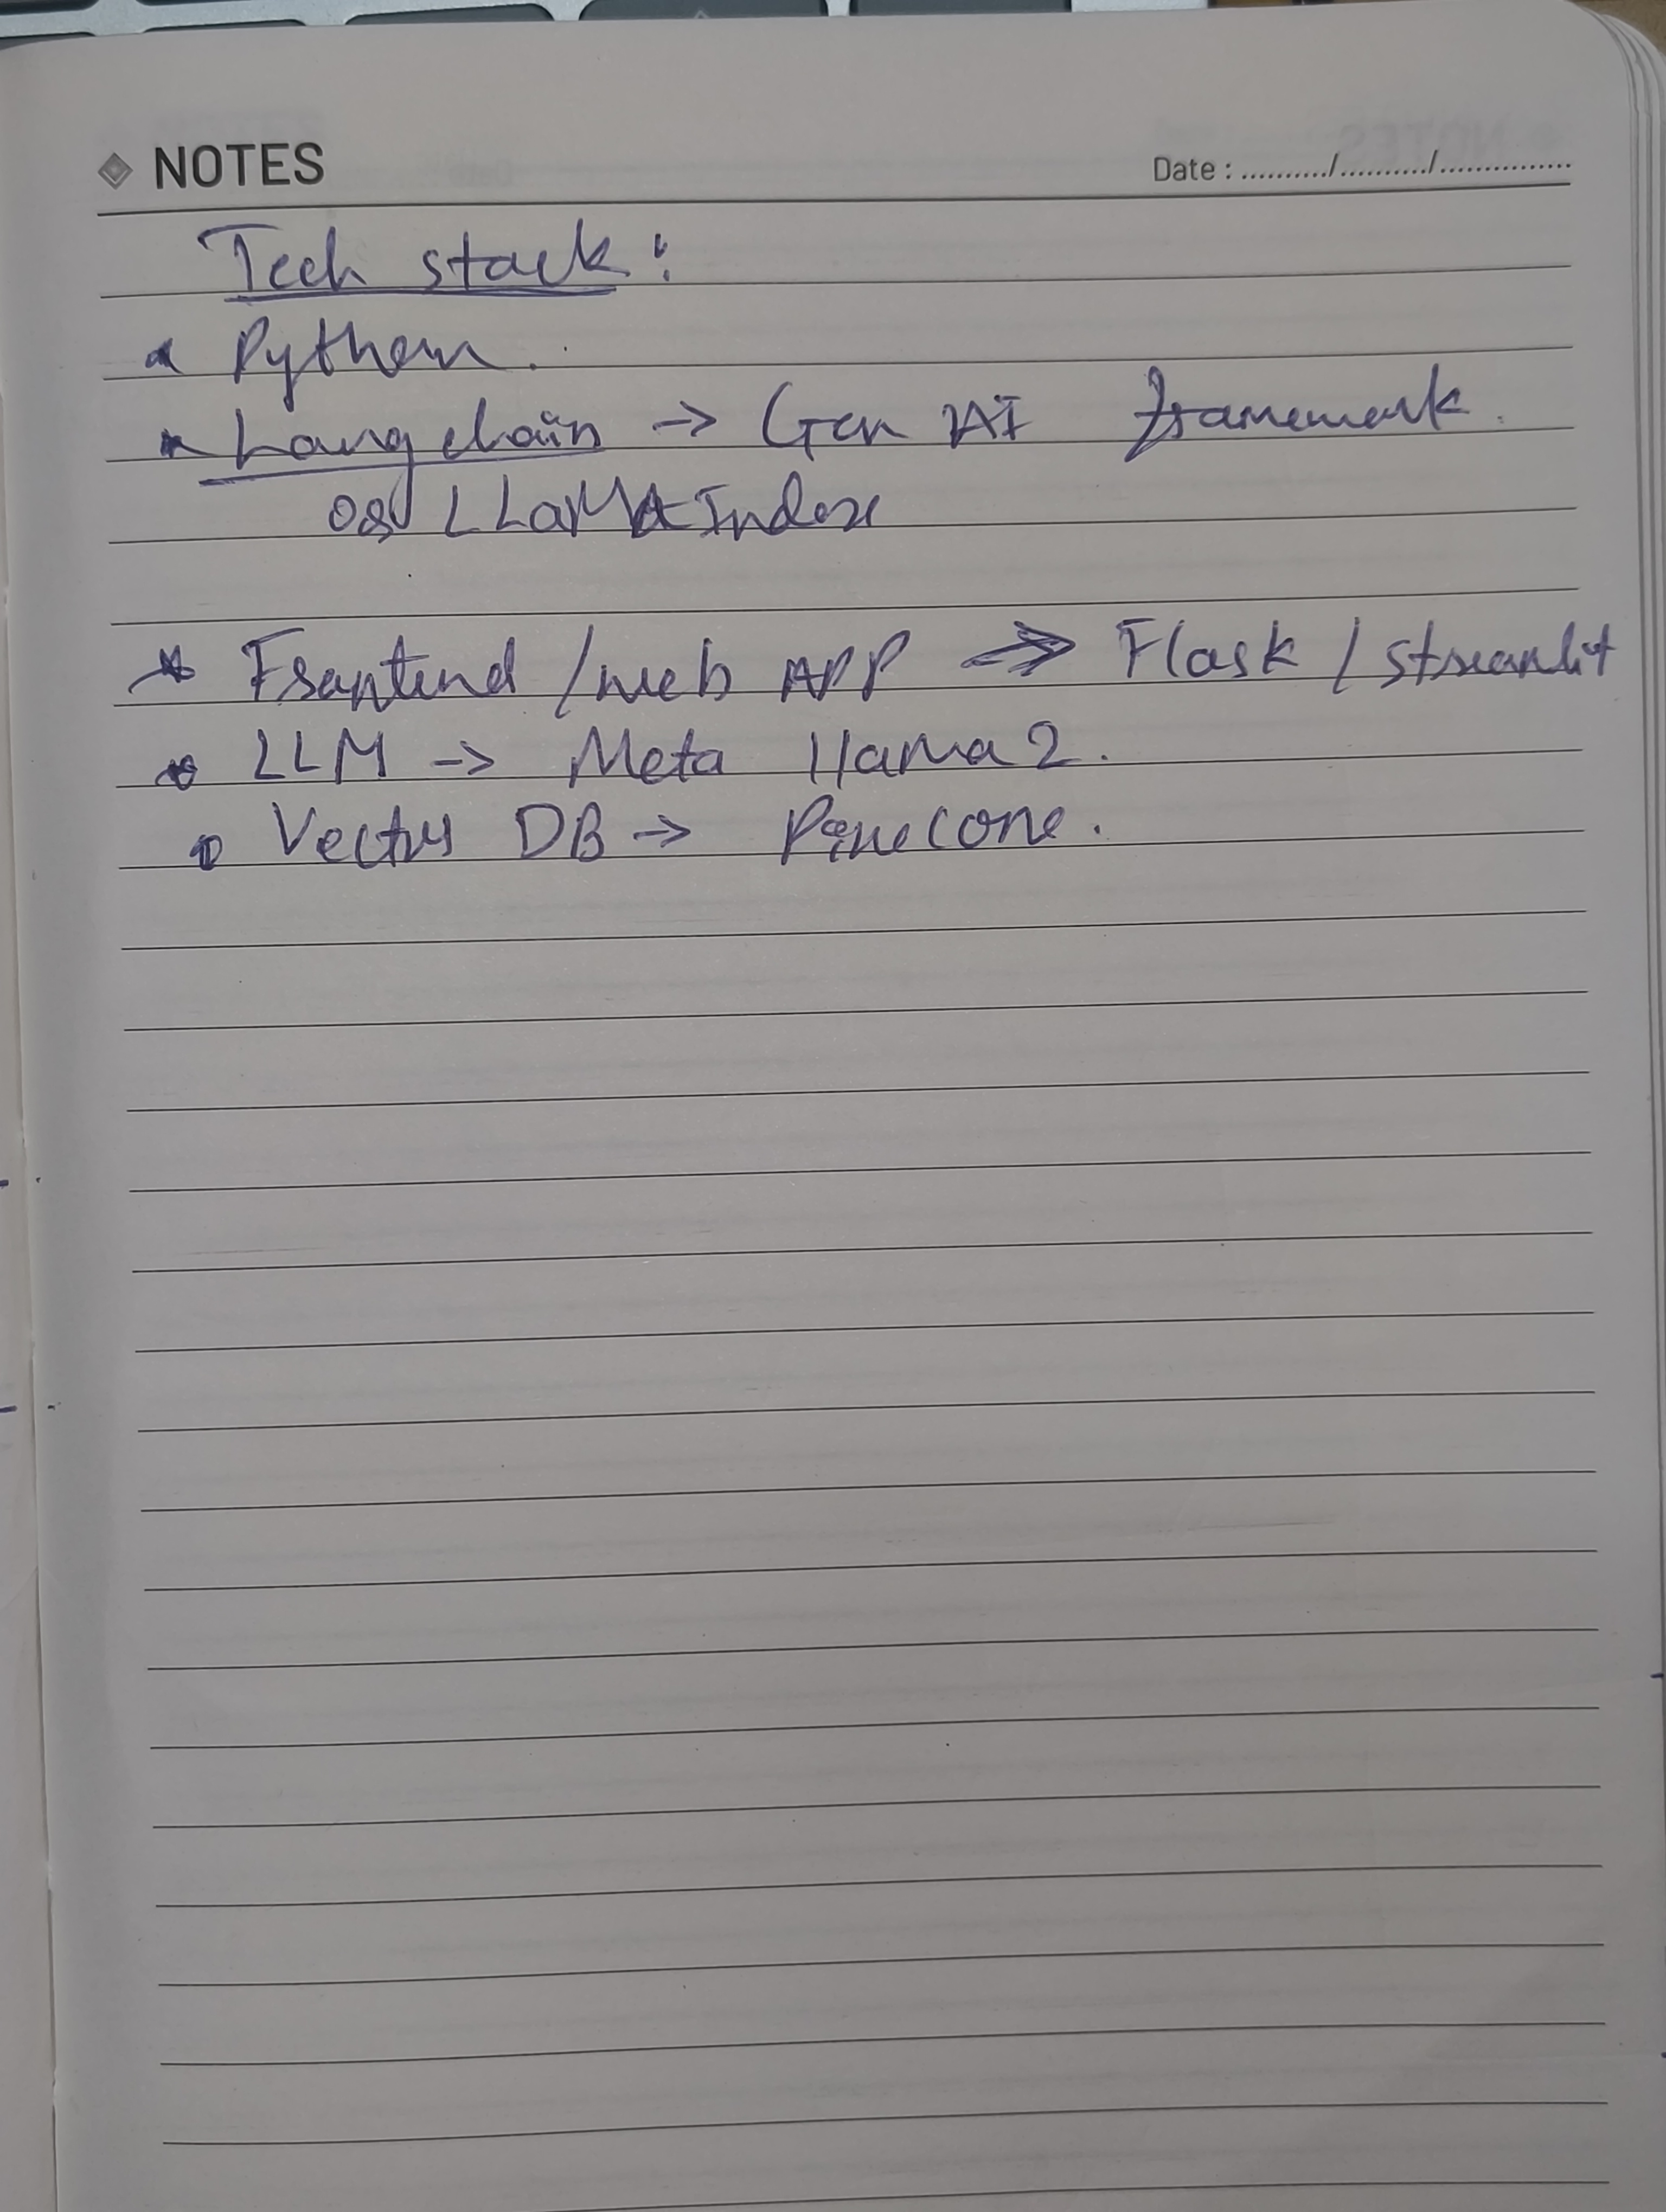 NOTES
Date : ........../........../...............
Tech stack :
Python.
Lang chain -> Gen AI framework.
or LLaMA Index
* Frontend / web APP => Flask / Streamlit
LLM -> Meta llama 2.
Vector DB -> Pinecone.